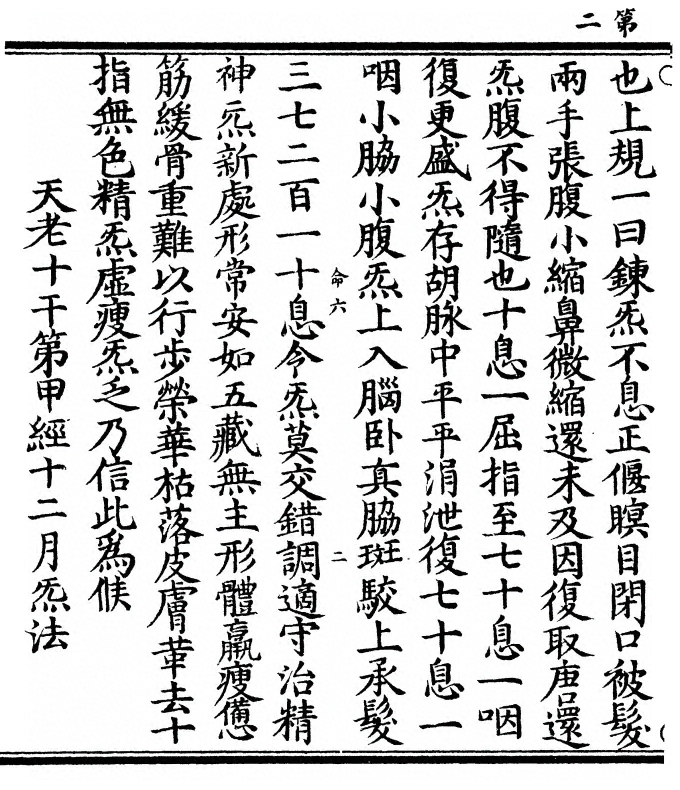 第二
也上規一曰鍊炁不息正偃瞑目閉口被髮
兩手張腹小縮鼻微縮還未及因復取還
炁腹不得隨也十息一屈指至七十息一咽
復更盛炁存胡脉中平平涓泄復七十息一
咽小脇小腹炁上入腦卧真脇斑駮上承髮
命六 二
三七二百一十息令炁莫交錯調適守治精
神炁新處形常安如五藏無主形體羸瘦憊
筋緩骨重難以行步榮華枯落皮膚去十
指無色精炁虛瘦炁乏乃信此爲候
天老十干第甲經十二月炁法